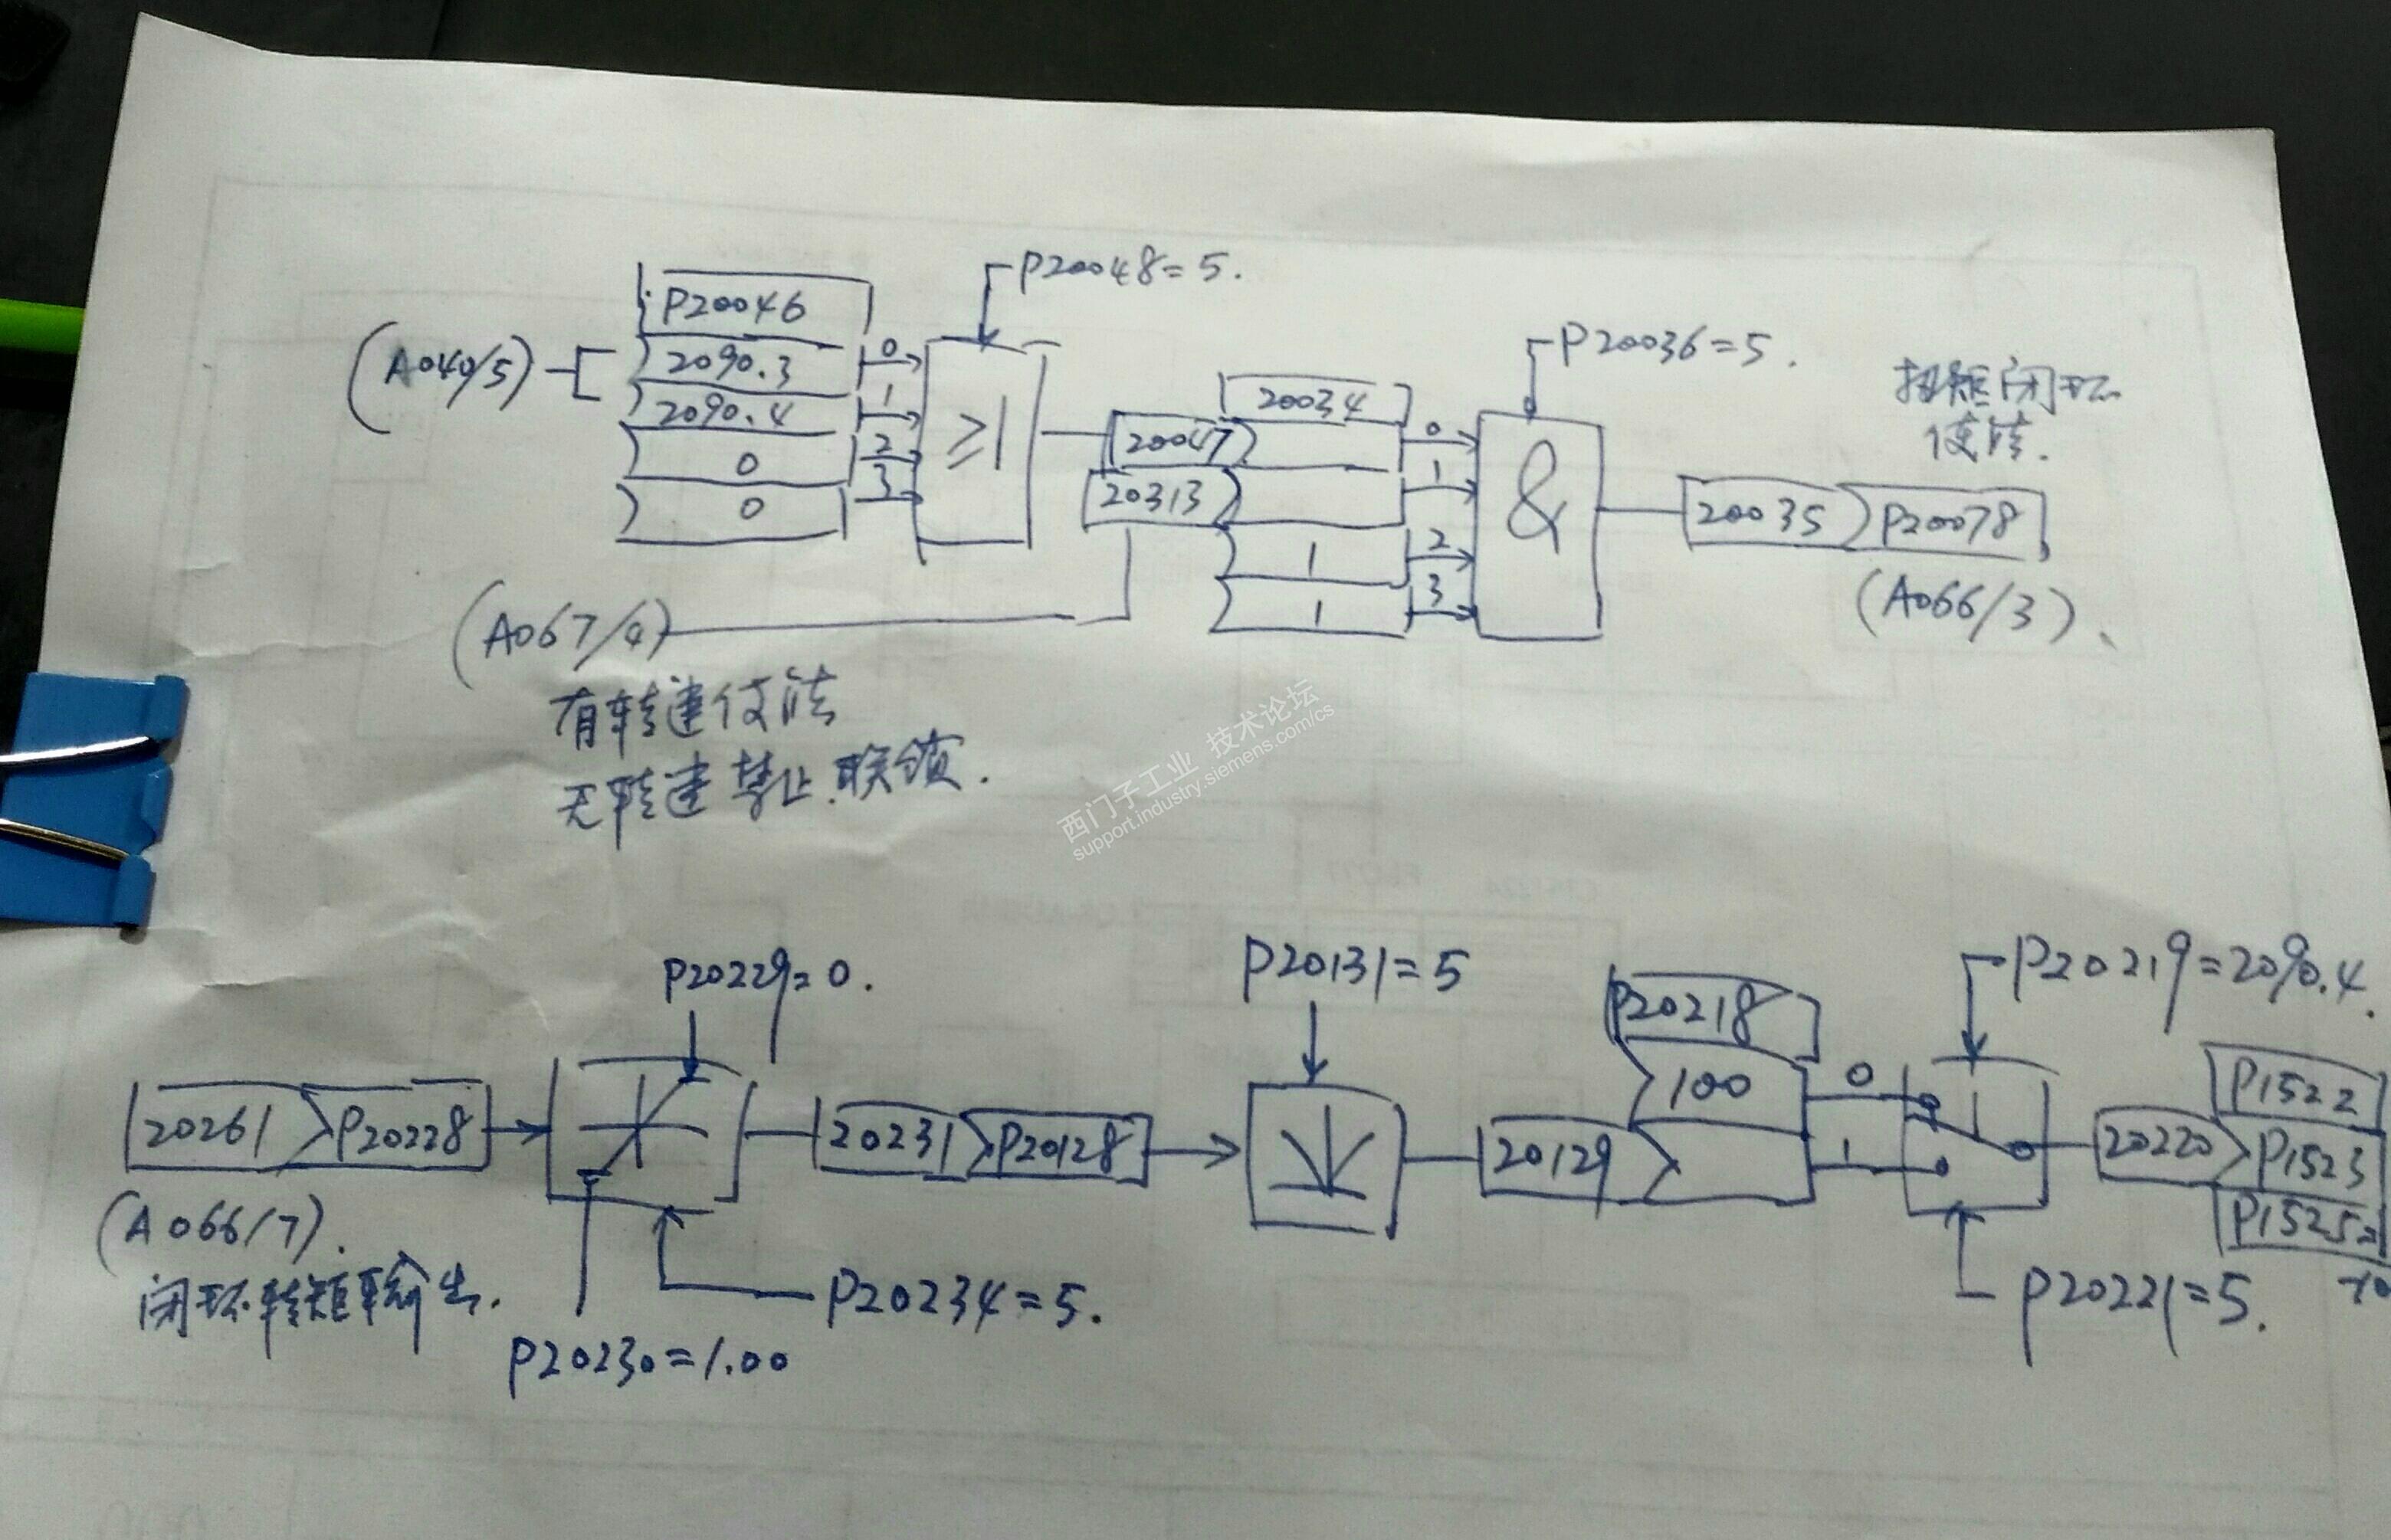 P20048=5.
P20046
(A040/5)
2090.3
0
2090.4
1
0
2
0
3
≥1
P20036=5.
20034
20047
0
20313
1
1
2
1
3
&
扭矩闭环
使能.
20035
P20078
(A066/3)
(A067/4)
有转速使能
无转速禁止.联锁.
西门子工业 技术论坛
support.industry.siemens.com/cs
P20229=0.
P20131=5
P20219=2090.4.
P20218
100
0
1
20261
P20228
20231
P20128
20129
20220
P1522
P1523
P1525=
(A066/7).
闭环转矩输出.
P20234=5.
P20230=1.00
P20221=5.